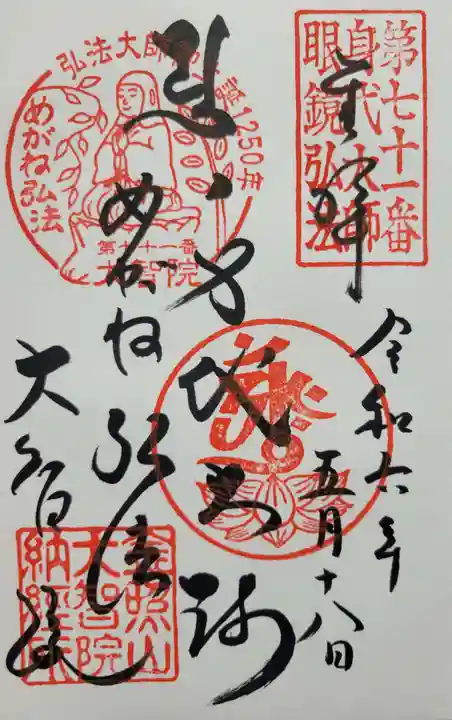 第七十一番
身代大師
眼鏡弘法
奉拝
令和六年
五月十八日
弘法大師
1250年
めがね弘法
第七十一番
大智院
身代大師
めがね弘法
大智院
金照山
大智院
納経